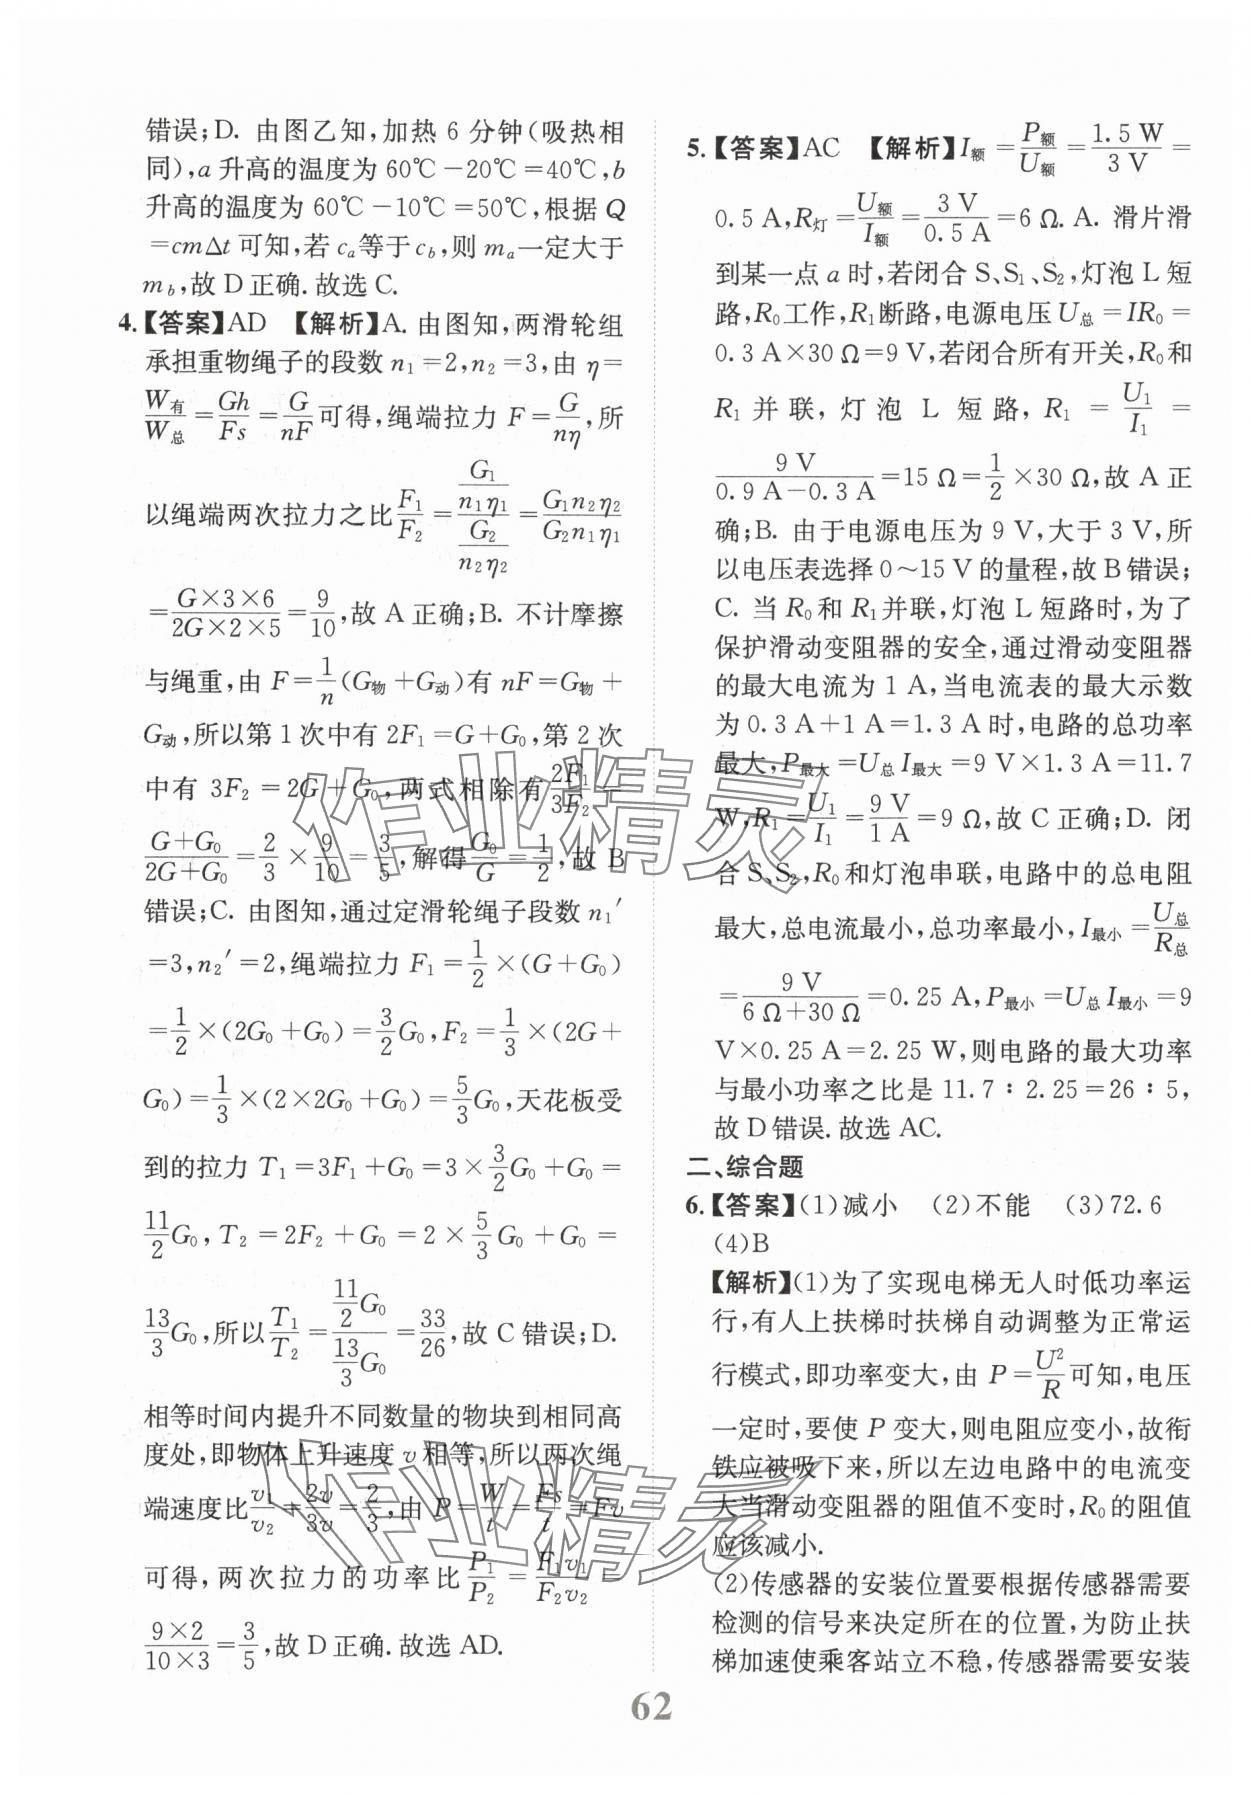 错误;D. 由图乙知,加热 6 分钟(吸热相
同),a 升高的温度为 60℃-20℃=40℃,b
升高的温度为 60℃-10℃=50℃,根据 Q
=cmΔt 可知,若 cₐ等于 c_b,则 mₐ一定大于
m_b,故 D 正确.故选 C.
4.【答案】AD 【解析】A. 由图知,两滑轮组
承担重物绳子的段数 n₁=2,n₂=3,由 η=
W有/W总=Gh/Fs=G/nF可得,绳端拉力 F=G/nη,所
以绳端两次拉力之比F₁/F₂=(G₁/n₁η₁)/(G₂/n₂η₂)=G₁n₂η₂/G₂n₁η₁
=G×3×6/2G×2×5=9/10,故 A 正确;B. 不计摩擦
与绳重,由 F=1/n(G物+G动)有 nF=G物+
G动,所以第 1 次中有 2F₁=G+G₀,第 2 次
中有 3F₂=2G+G₀,两式相除有2F₁/3F₂=
G+G₀/2G+G₀=2/3×9/10=3/5,解得G₀/G=1/2,故 B
错误;C. 由图知,通过定滑轮绳子段数 n₁′
=3,n₂′=2,绳端拉力 F₁=1/2×(G+G₀)
=1/2×(2G₀+G₀)=3/2G₀,F₂=1/3×(2G+
G₀)=1/3×(2×2G₀+G₀)=5/3G₀,天花板受
到的拉力 T₁=3F₁+G₀=3×3/2G₀+G₀=
11/2G₀,T₂=2F₂+G₀=2×5/3G₀+G₀=
13/3G₀,所以T₁/T₂=(11/2G₀)/(13/3G₀)=33/26,故 C 错误;D.
相等时间内提升不同数量的物块到相同高
度处,即物体上升速度 v 相等,所以两次绳
端速度比v₁/v₂=2v/3v=2/3,由 P=W/t=Fs/t=Fv
可得,两次拉力的功率比P₁/P₂=F₁v₁/F₂v₂=
9×2/10×3=3/5,故 D 正确.故选 AD.
5.【答案】AC 【解析】I额=P额/U额=1.5 W/3 V=
0.5 A,R灯=U额/I额=3 V/0.5 A=6 Ω. A. 滑片滑
到某一点 a 时,若闭合 S、S₁、S₂,灯泡 L 短
路,R₀工作,R₁断路,电源电压 U总=IR₀=
0.3 A×30 Ω=9 V,若闭合所有开关,R₀和
R₁ 并联,灯泡 L 短路,R₁=U₁/I₁=
9 V/0.9 A-0.3 A=15 Ω=1/2×30 Ω,故 A 正
确;B. 由于电源电压为 9 V,大于 3 V,所
以电压表选择 0~15 V 的量程,故 B 错误;
C. 当 R₀和 R₁并联,灯泡 L 短路时,为了
保护滑动变阻器的安全,通过滑动变阻器
的最大电流为 1 A,当电流表的最大示数
为 0.3 A+1 A=1.3 A 时,电路的总功率
最大,P最大=U总I最大=9 V×1.3 A=11.7
W,R₁=U₁/I₁=9 V/1 A=9 Ω,故 C 正确;D. 闭
合 S、S₂,R₀和灯泡串联,电路中的总电阻
最大,总电流最小,总功率最小,I最小=U总/R总
=9 V/6 Ω+30 Ω=0.25 A,P最小=U总I最小=9
V×0.25 A=2.25 W,则电路的最大功率
与最小功率之比是 11.7∶2.25=26∶5,
故 D 错误.故选 AC.
二、综合题
6.【答案】(1)减小 (2)不能 (3)72.6
(4)B
【解析】(1)为了实现电梯无人时低功率运
行,有人上扶梯时扶梯自动调整为正常运
行模式,即功率变大,由 P=U²/R可知,电压
一定时,要使 P 变大,则电阻应变小,故衔
铁应被吸下来,所以左边电路中的电流变
大当滑动变阻器的阻值不变时,R₀的阻值
应该减小.
(2)传感器的安装位置要根据传感器需要
检测的信号来决定所在的位置,为防止扶
梯加速使乘客站立不稳,传感器需要安装
62
作业精灵
作业精灵